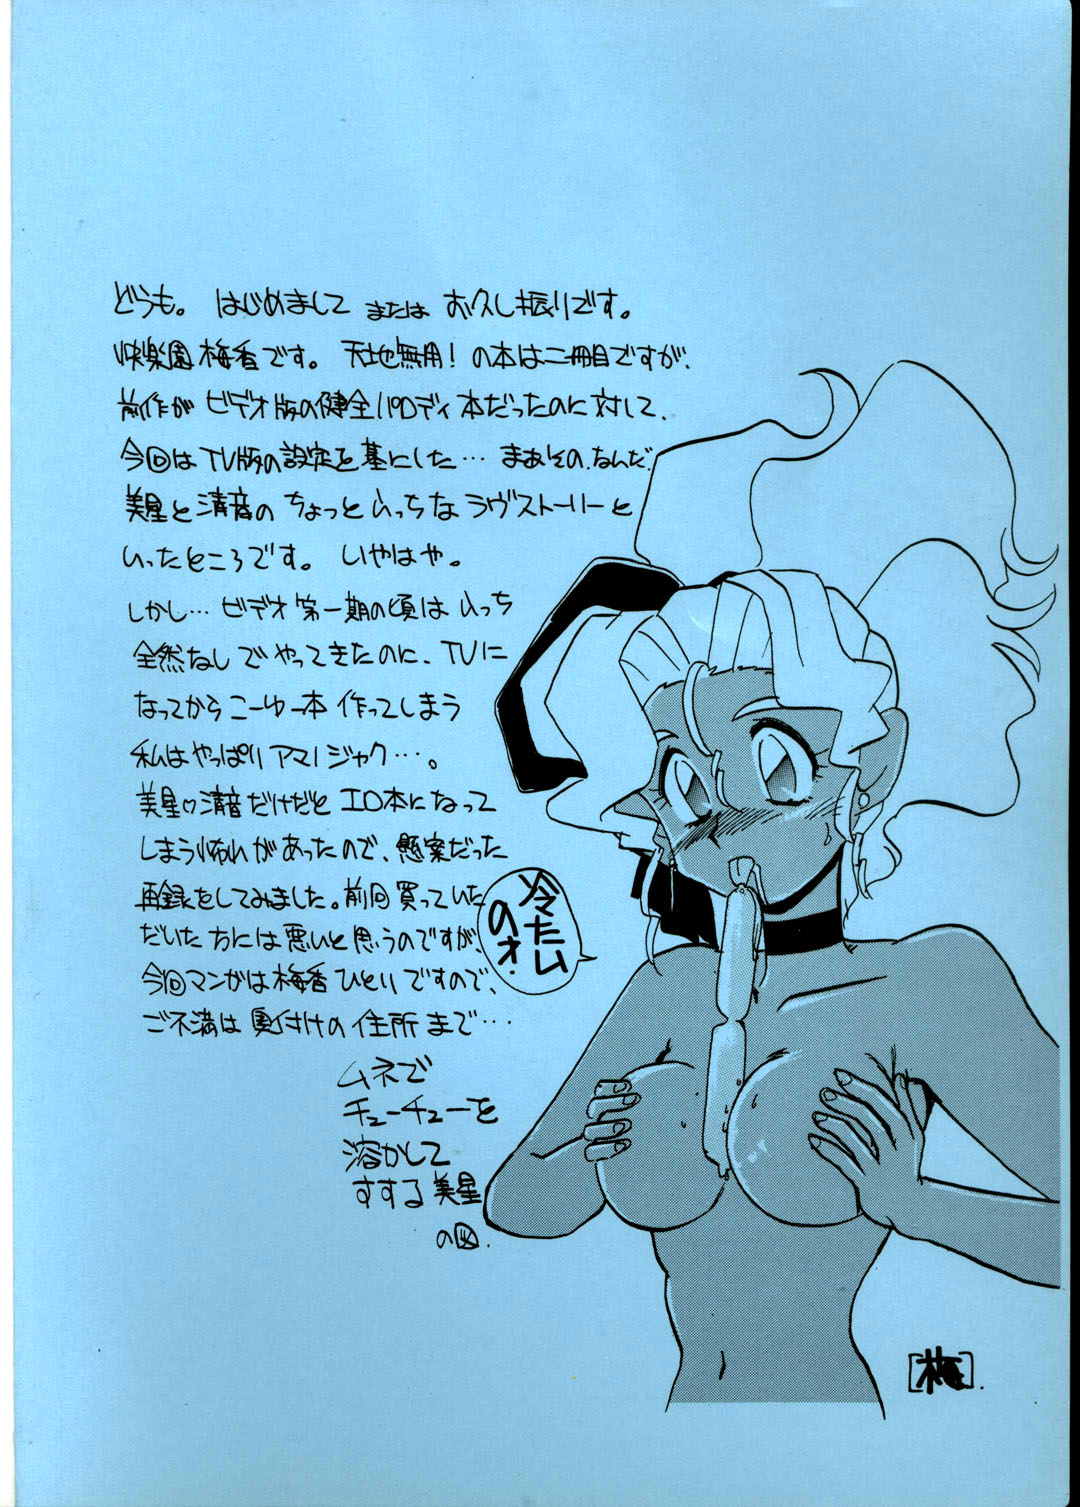 どうも。 はじめまして または お久し振りです。
快楽園梅香です。 天地無用！の本は二冊目ですが、
前作がビデオ版の健全パロディ本だったのに対して、
今回はTV版の設定を基にした… まあその、なんだ
美星と清音の ちょっと えっちな ラヴストーリーと
いったところです。 いやはや。
しかし… ビデオ第一期の頃は えっち
全然なしで やってきたのに、TVに
なってから こーゆー本 作ってしまう
私は やっぱり アマノジャク…。
美星♡清音だけだと エロ本になって
しまう怖れがあったので、懸案だった
再録をしてみました。前回買っていた
だいた方には悪いと思うのですが、
今回マンガは梅香ひとりですので、
ご不満は奥付けの住所まで…
冷たム
のォ.
ムネで
チューチューを
溶かして
すする美星
の図.
[梅].